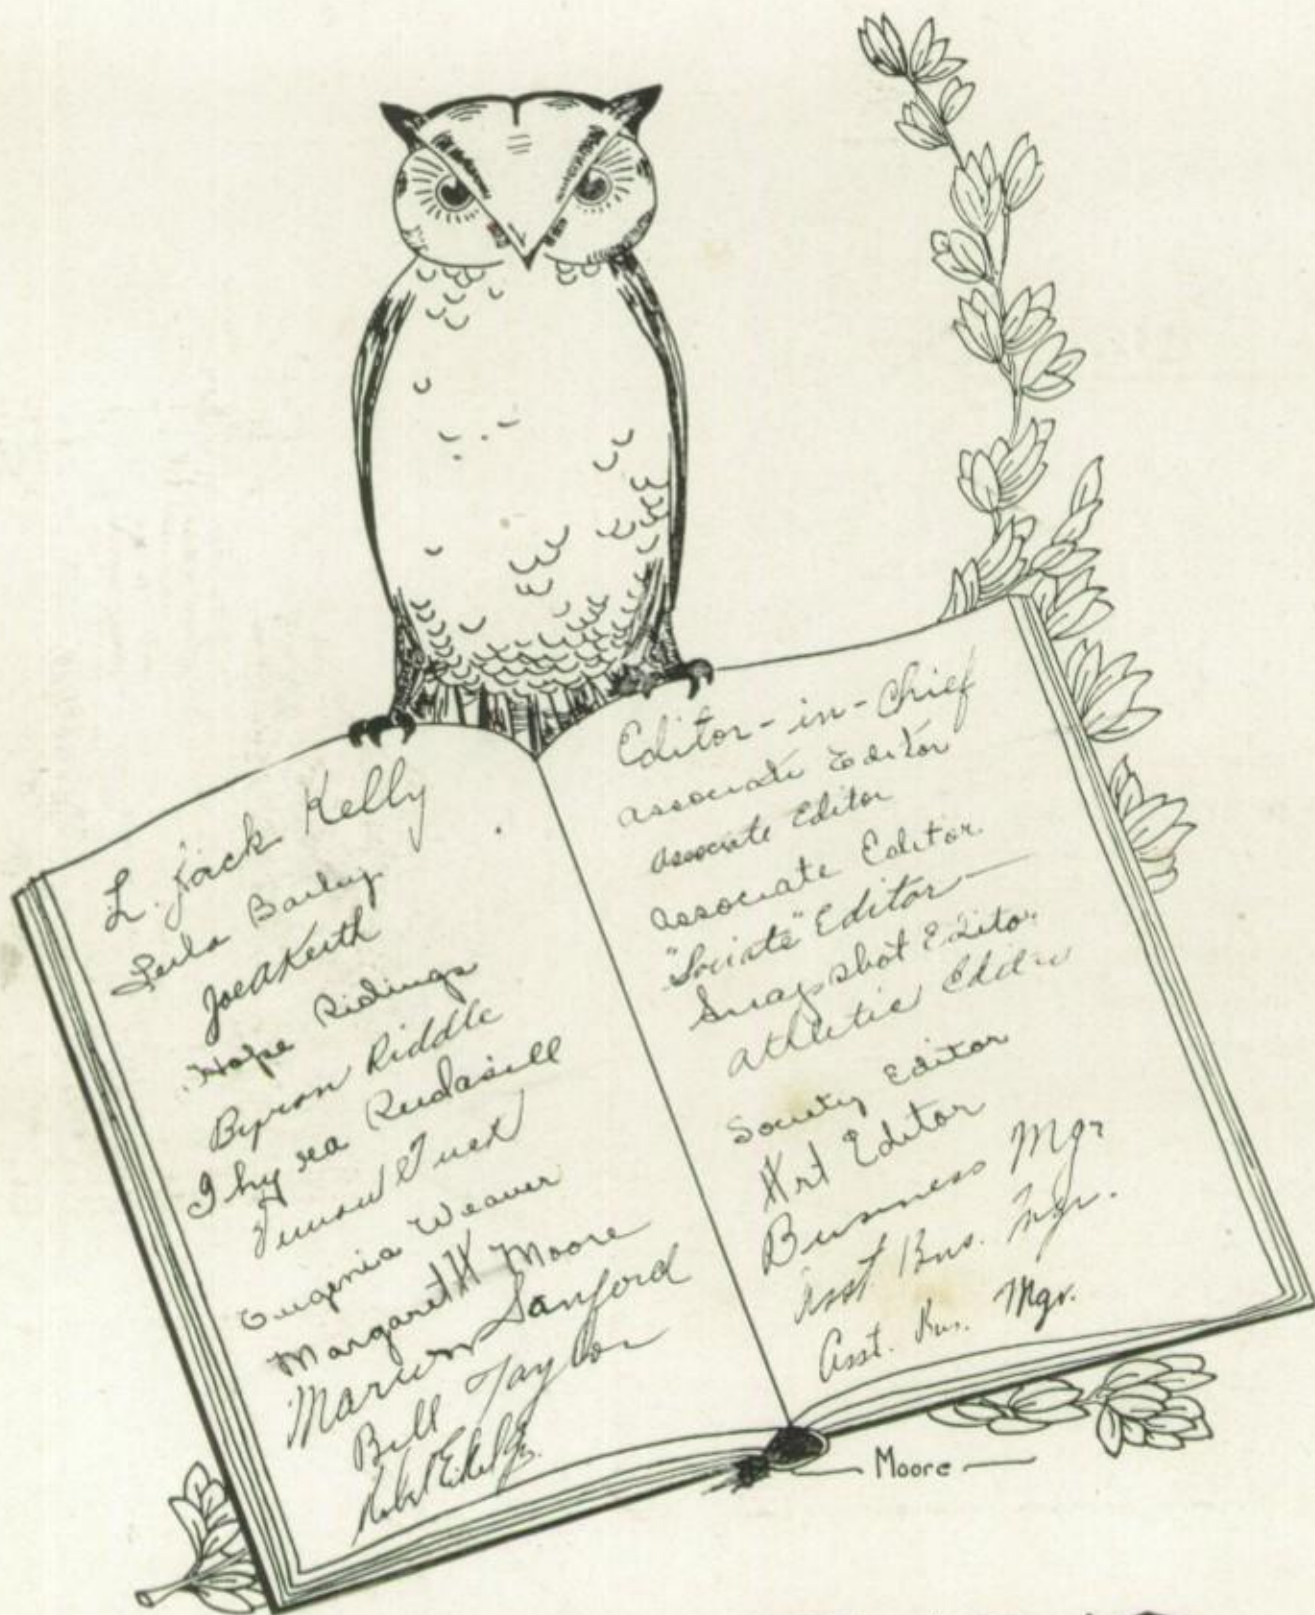 L. Jack Kelly
Leila Bailey
Joe A Keith
Hope Ridings
Byron Riddle
Thyrea Rudasill
Tuck
Eugenia Weaver
Margaret H Moore
Marion Sanford
Bill Taylor
Jr.
Editor-in-Chief
Associate Editor
Associate Editor
Associate Editor
"Sociate" Editor
Snapshot Editor
Athletic Editor
Society Editor
Art Editor
Business Mgr
Asst Bus. Mgr.
Asst. Bus. Mgr.
Moore